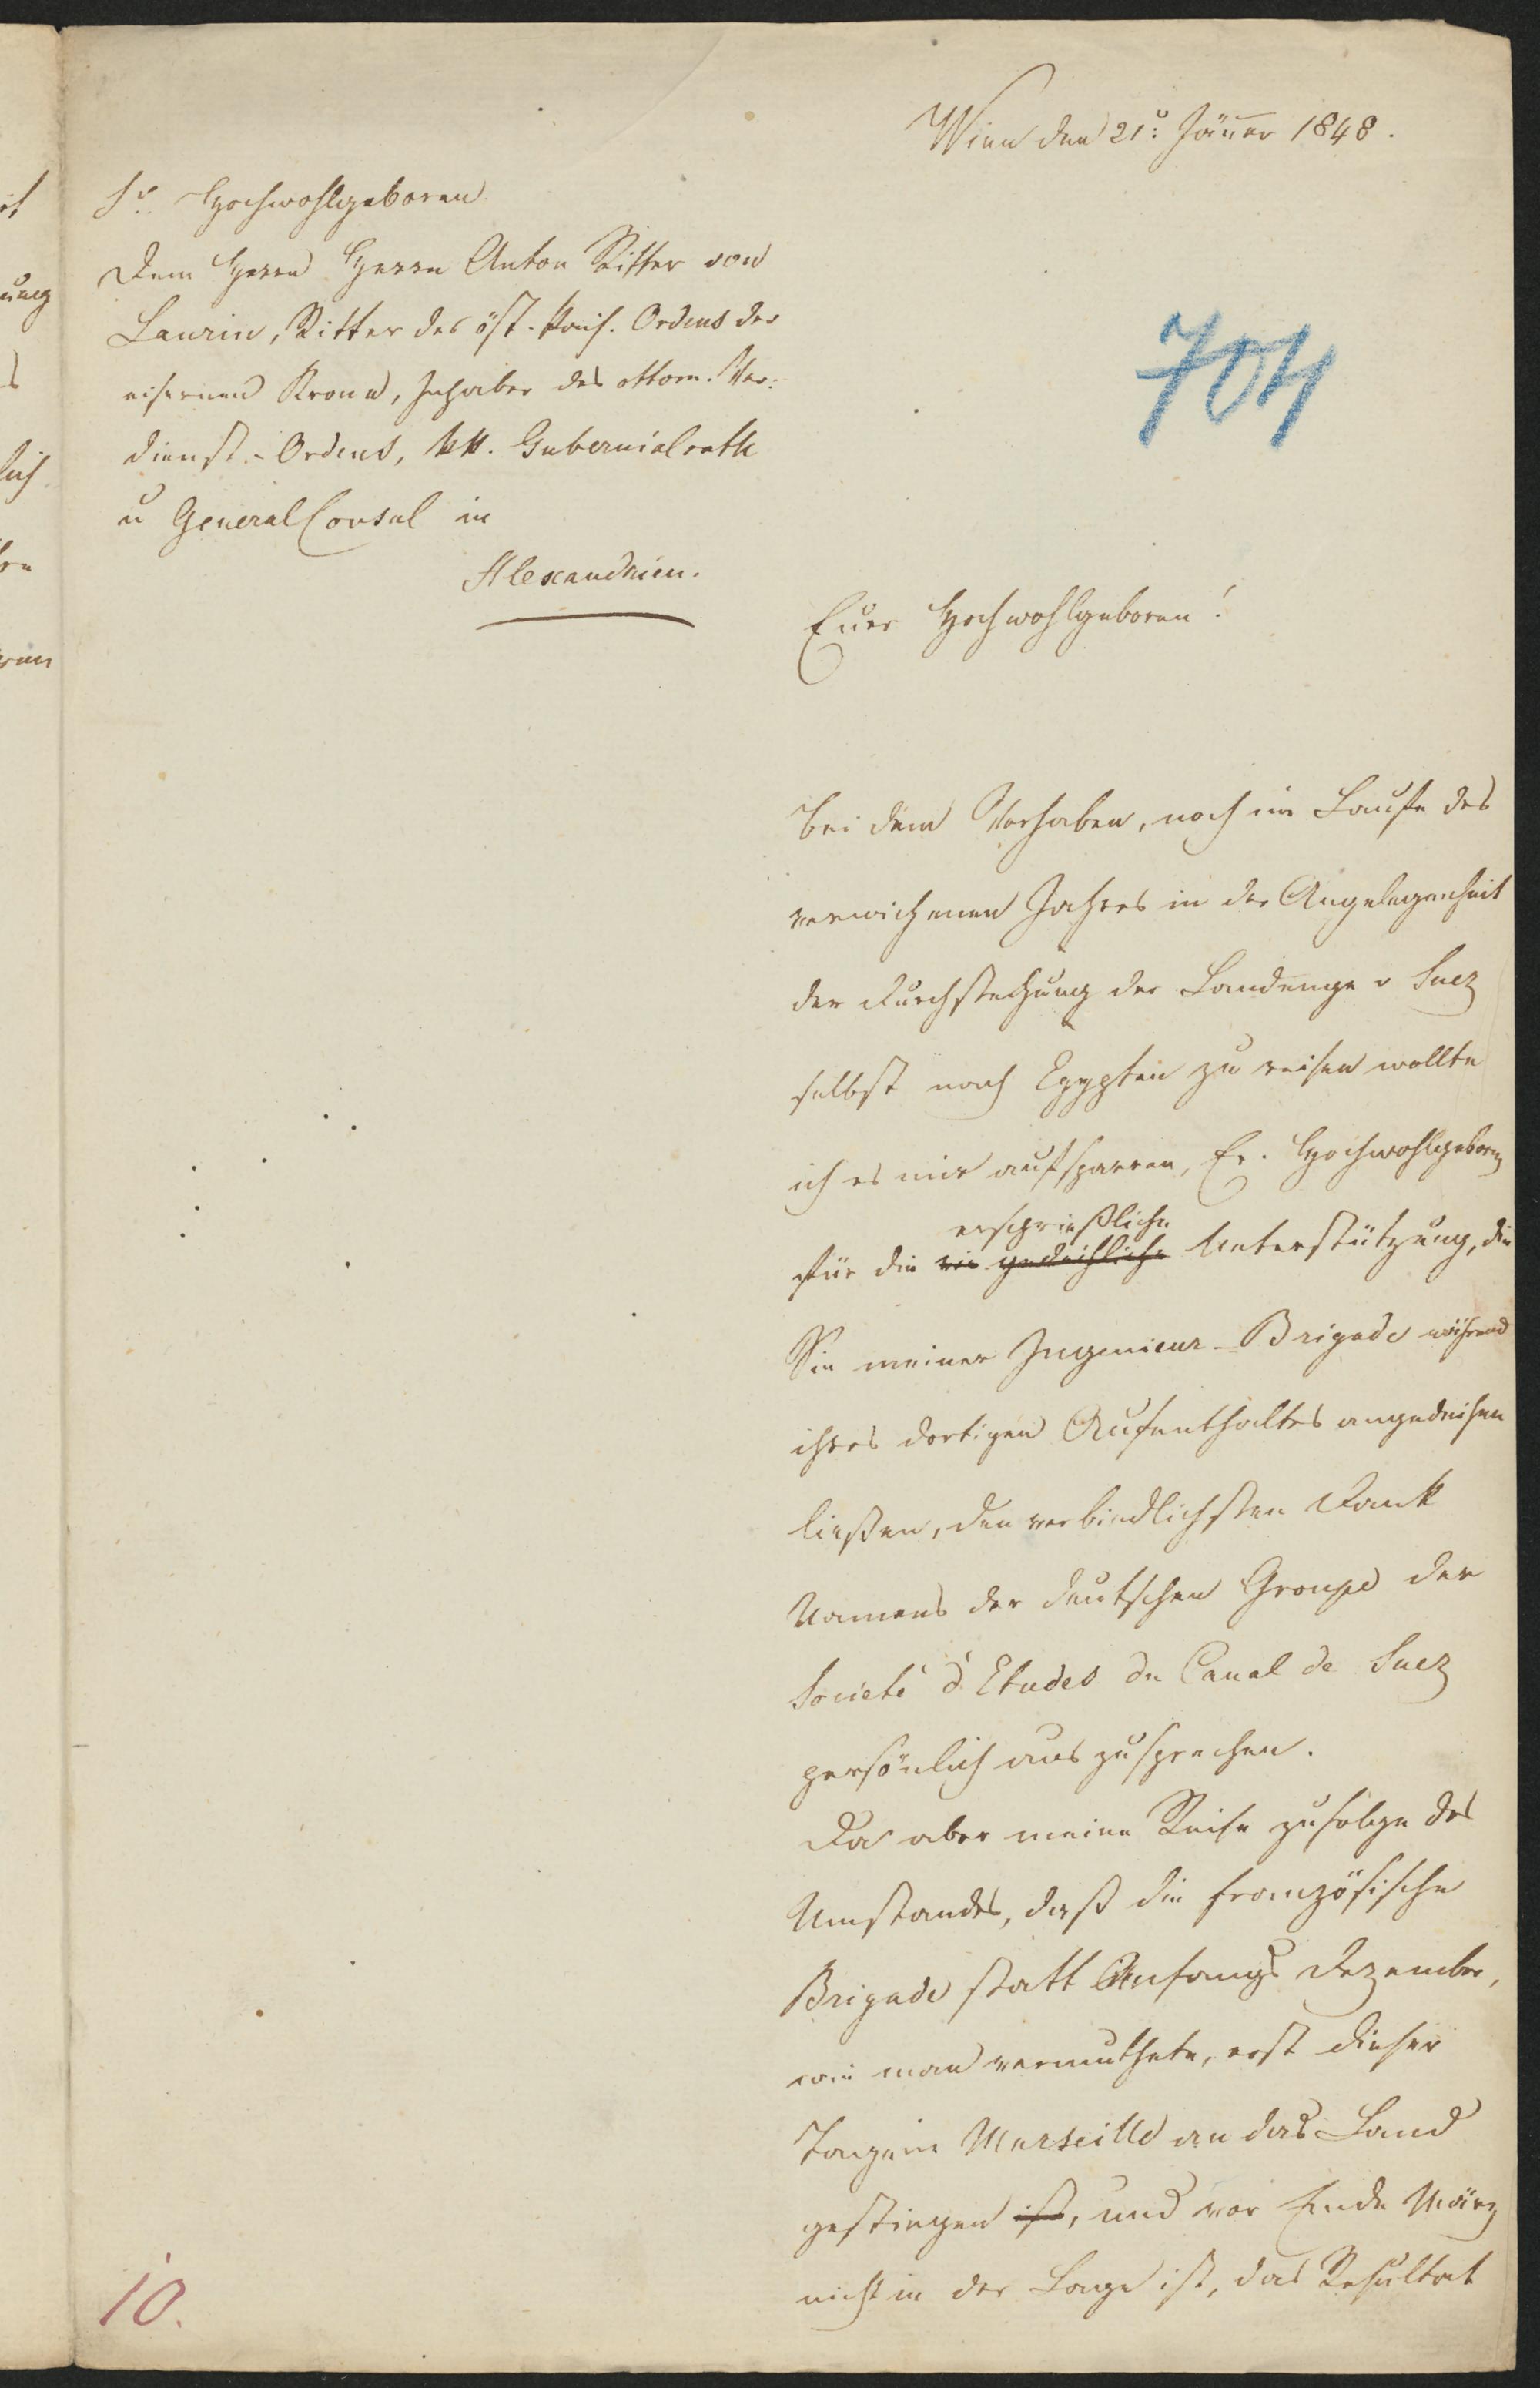 Wien den 21: Jäner 1848.
Sr. Hochwohlgeboren
Dem Herrn Herrn Anton Ritter von
Laurin, Ritter des öst. kais. Ordens der
eisernen Krone, Inhaber des ottom. Ver:
dienst-Ordens, kk. Gubernialrath
u General Consul in
Alexandrien.
704
Euer Hochwohlgeboren!
Bei dem Vorhaben, noch im Laufe des
verwichenen Jahres in der Angelegenheit
der Durchstechung der Landenge v Suez
selbst nach Egypten zu reisen wollte
ich es mir aufsparen, Er. Hochwohlgeboren
ersprießliche
für die gedeihliche Unterstützung, die
Sie meiner Ingenieur-Brigade während
ihres dortigen Aufenthaltes angedeihen
ließen, den verbindlichsten Dank
Namens der deutschen Groupe der
Societé d'Etudes du Canal de Suez
persönlich auszusprechen.
Da aber meine Reise zufolge des
Umstandes, daß die französische
Brigade statt Anfangs Dezember,
wie man vermuthete, erst dieser
Tage in Marseille an das Land
gestiegen ist, und vor Ende März
nicht in der Lage ist, das Resultat
10.